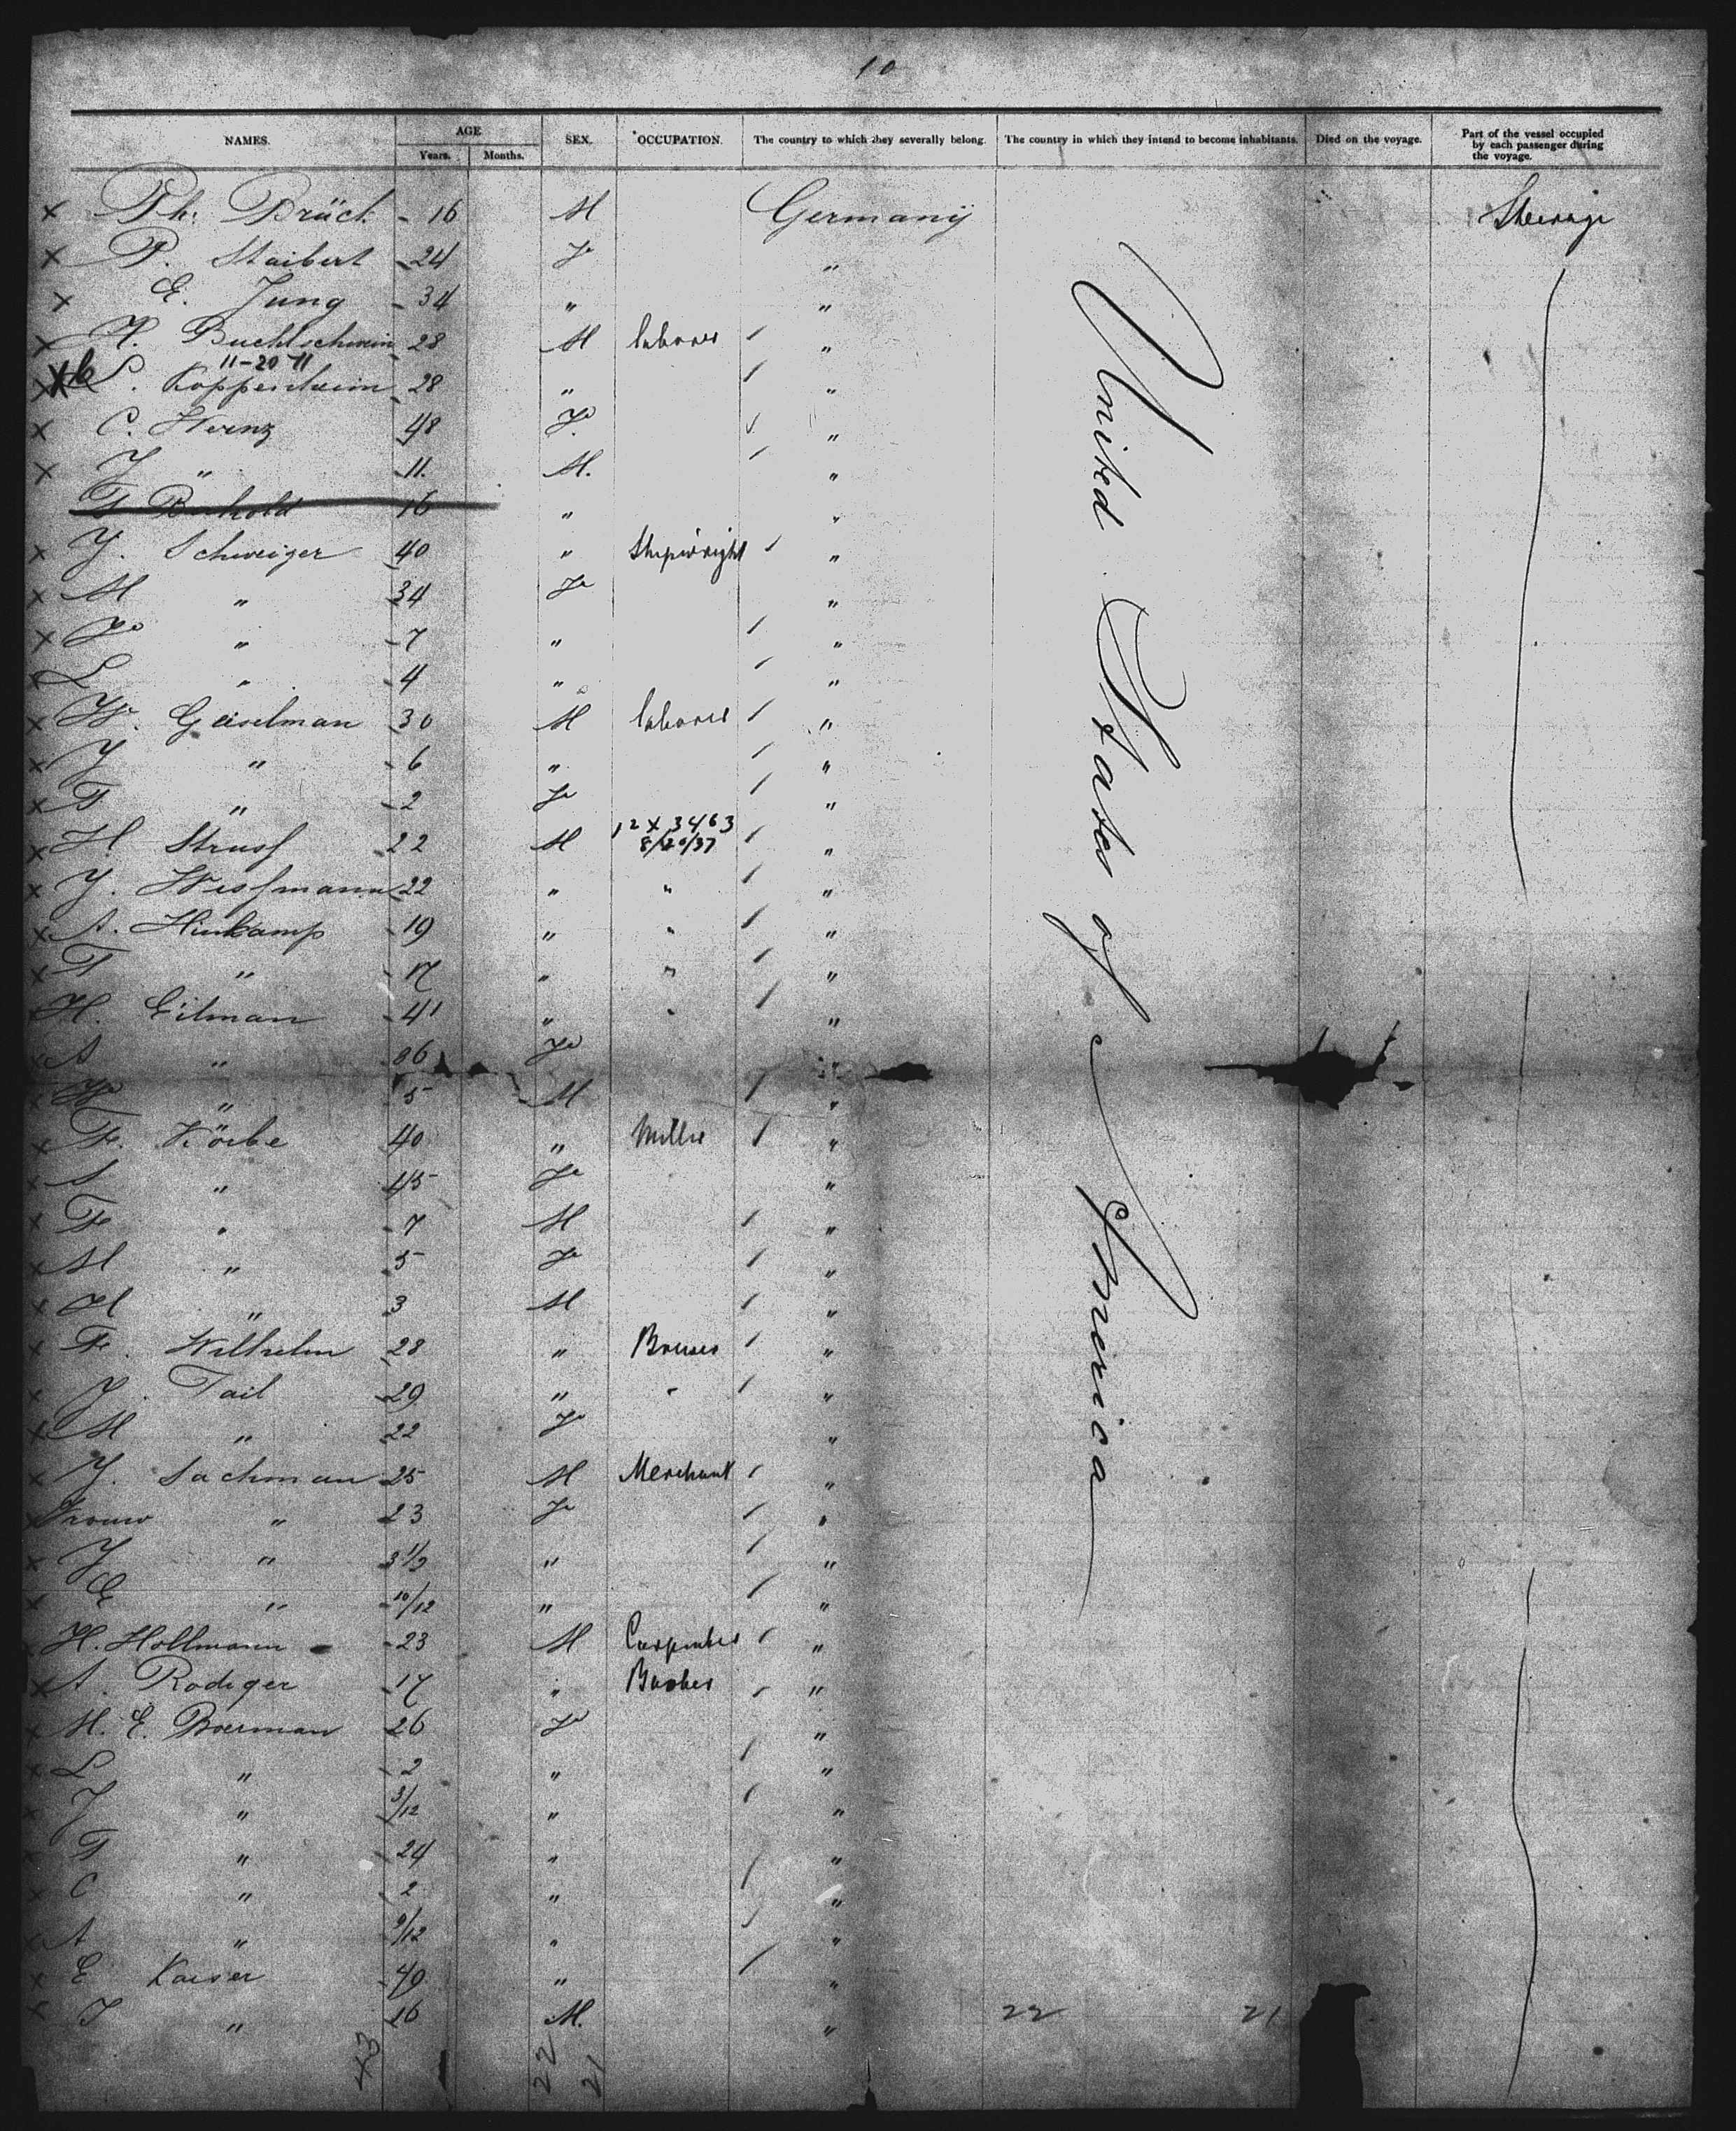 10
NAMES. AGE SEX. OCCUPATION. The country to which they severally belong. The country in which they intend to become inhabitants. Died on the voyage. Part of the vessel occupied by each passenger during the voyage.
Years. Months.
x Ph. Brück - 16 M Germany Steerage
x P. Staibert - 24 F "
x E. Jung - 34 " "
x H. 28 M laborer / "
11-20-11
x S. Koppenheim - 28 " / "
x C. Wernz 48 F. / "
x J " 11. M. / "
F 16 " "
x J. Schweizer 40 " Shipwright / "
x M " 34 F "
x F " - 7 " / "
x L " - 4 " / "
x W. Geiselman 30 M laborer / "
x J " - 6 " / "
x F " - 2 F / "
12 x 3463
x H Struss 22 M 8/20/37 / "
x J. Wessmann 22 " " / "
x A. Hinkamp - 19 " " / "
x F " - 17 " " / "
x H. Eilman - 41 " " / "
x A " 36 F "
x W " 5 M / "
x Fr. Körbe 40 " Miller / "
x S " 45 F "
x Fr " - 7 M / "
x M " 5 F / "
x H " 3 M / "
x Fr. Wilhelm 28 " Brewer / "
x J. Tail - 29 " " / "
x M " 22 F "
x J. Sachman 25 M Merchant / "
x Frouw " 23 F / "
x J " 3 1/2 " / "
x E " - 10/12 " / "
H. Hollmann - 23 M Carpenter / "
x A. Rodeger - 17 " Barber / "
x M. E. Boerman 26 F "
x L " - 2 " / "
x J " 3/12 " / "
x F " - 24 " / "
x C " - 2 " / "
x A " 9/12 " / "
x E Kaiser - 40 " / "
x J " 16 M. "
United States of America
22 21
43 22 21